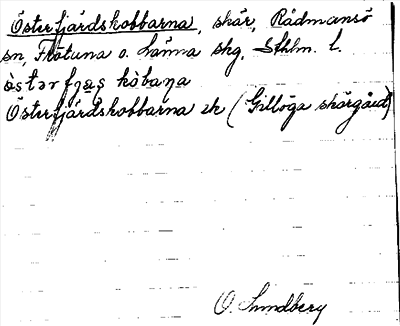 Österfjärdskobbarna, skär, Rådmansö
sn, Frötuna o. Länna skg, Sthlm. l.
östərfjaṣ kòbaṇa
Österfjärdskobbarna ek (Gillöga skärgård)
O. Lundberg